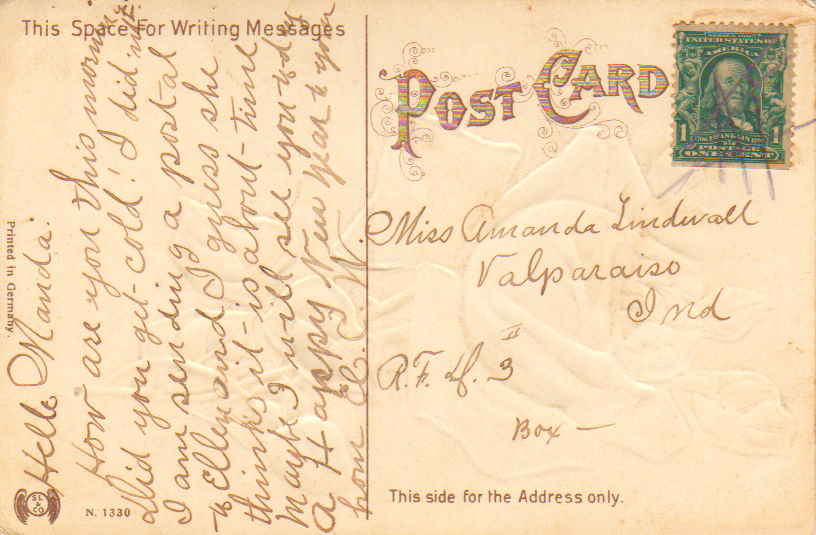 This Space For Writing Messages
POST CARD
UNITED STATES OF
AMERICA
1 1
POSTAGE
ONE CENT
Hello Manda.
How are you this morning
Did you get cold! I did not.
I am sending a postal
to Ellen and I guess she
thinks it is about time
Maybe I will see you to day
A Happy New Year to you
from E. L. W.
Miss Amanda Lindwall
Valparaiso
Ind
R.F.D. 3
II
Box —
This side for the Address only.
Printed in Germany.
SL & CO
N. 1330